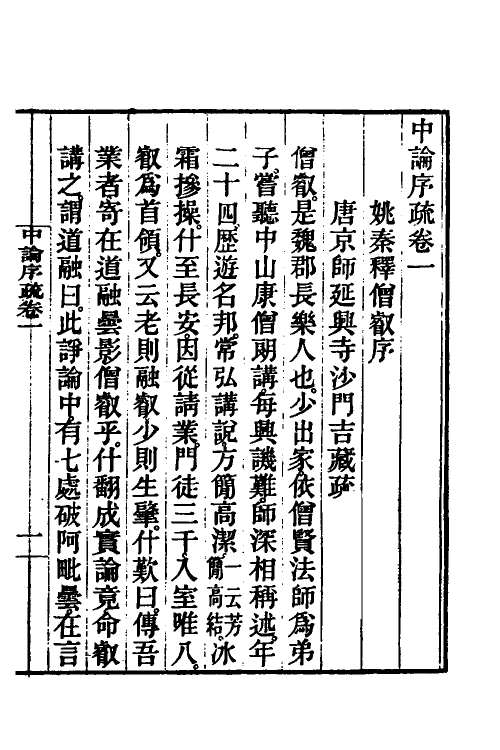 中論序疏卷一
姚秦釋僧叡序
唐京師延興寺沙門吉藏疏
僧叡。是魏郡長樂人也。少出家。依僧賢法師爲弟
子。嘗聽中山康僧朗講。每興譏難。師深相稱述。年
二十四。歷遊名邦。常弘講說。方簡高潔。一云芳簡高結。冰
霜摻操。什至長安。因從請業。門徒三千。入室唯八。
叡爲首領。又云老則融叡。少則生肇。什歎曰。傳吾
業者寄在道融曇影僧叡乎。什翻成實論竟。命叡
講之。謂道融曰。此諍論中有七處破阿毗曇。在言
中論序疏卷一
一